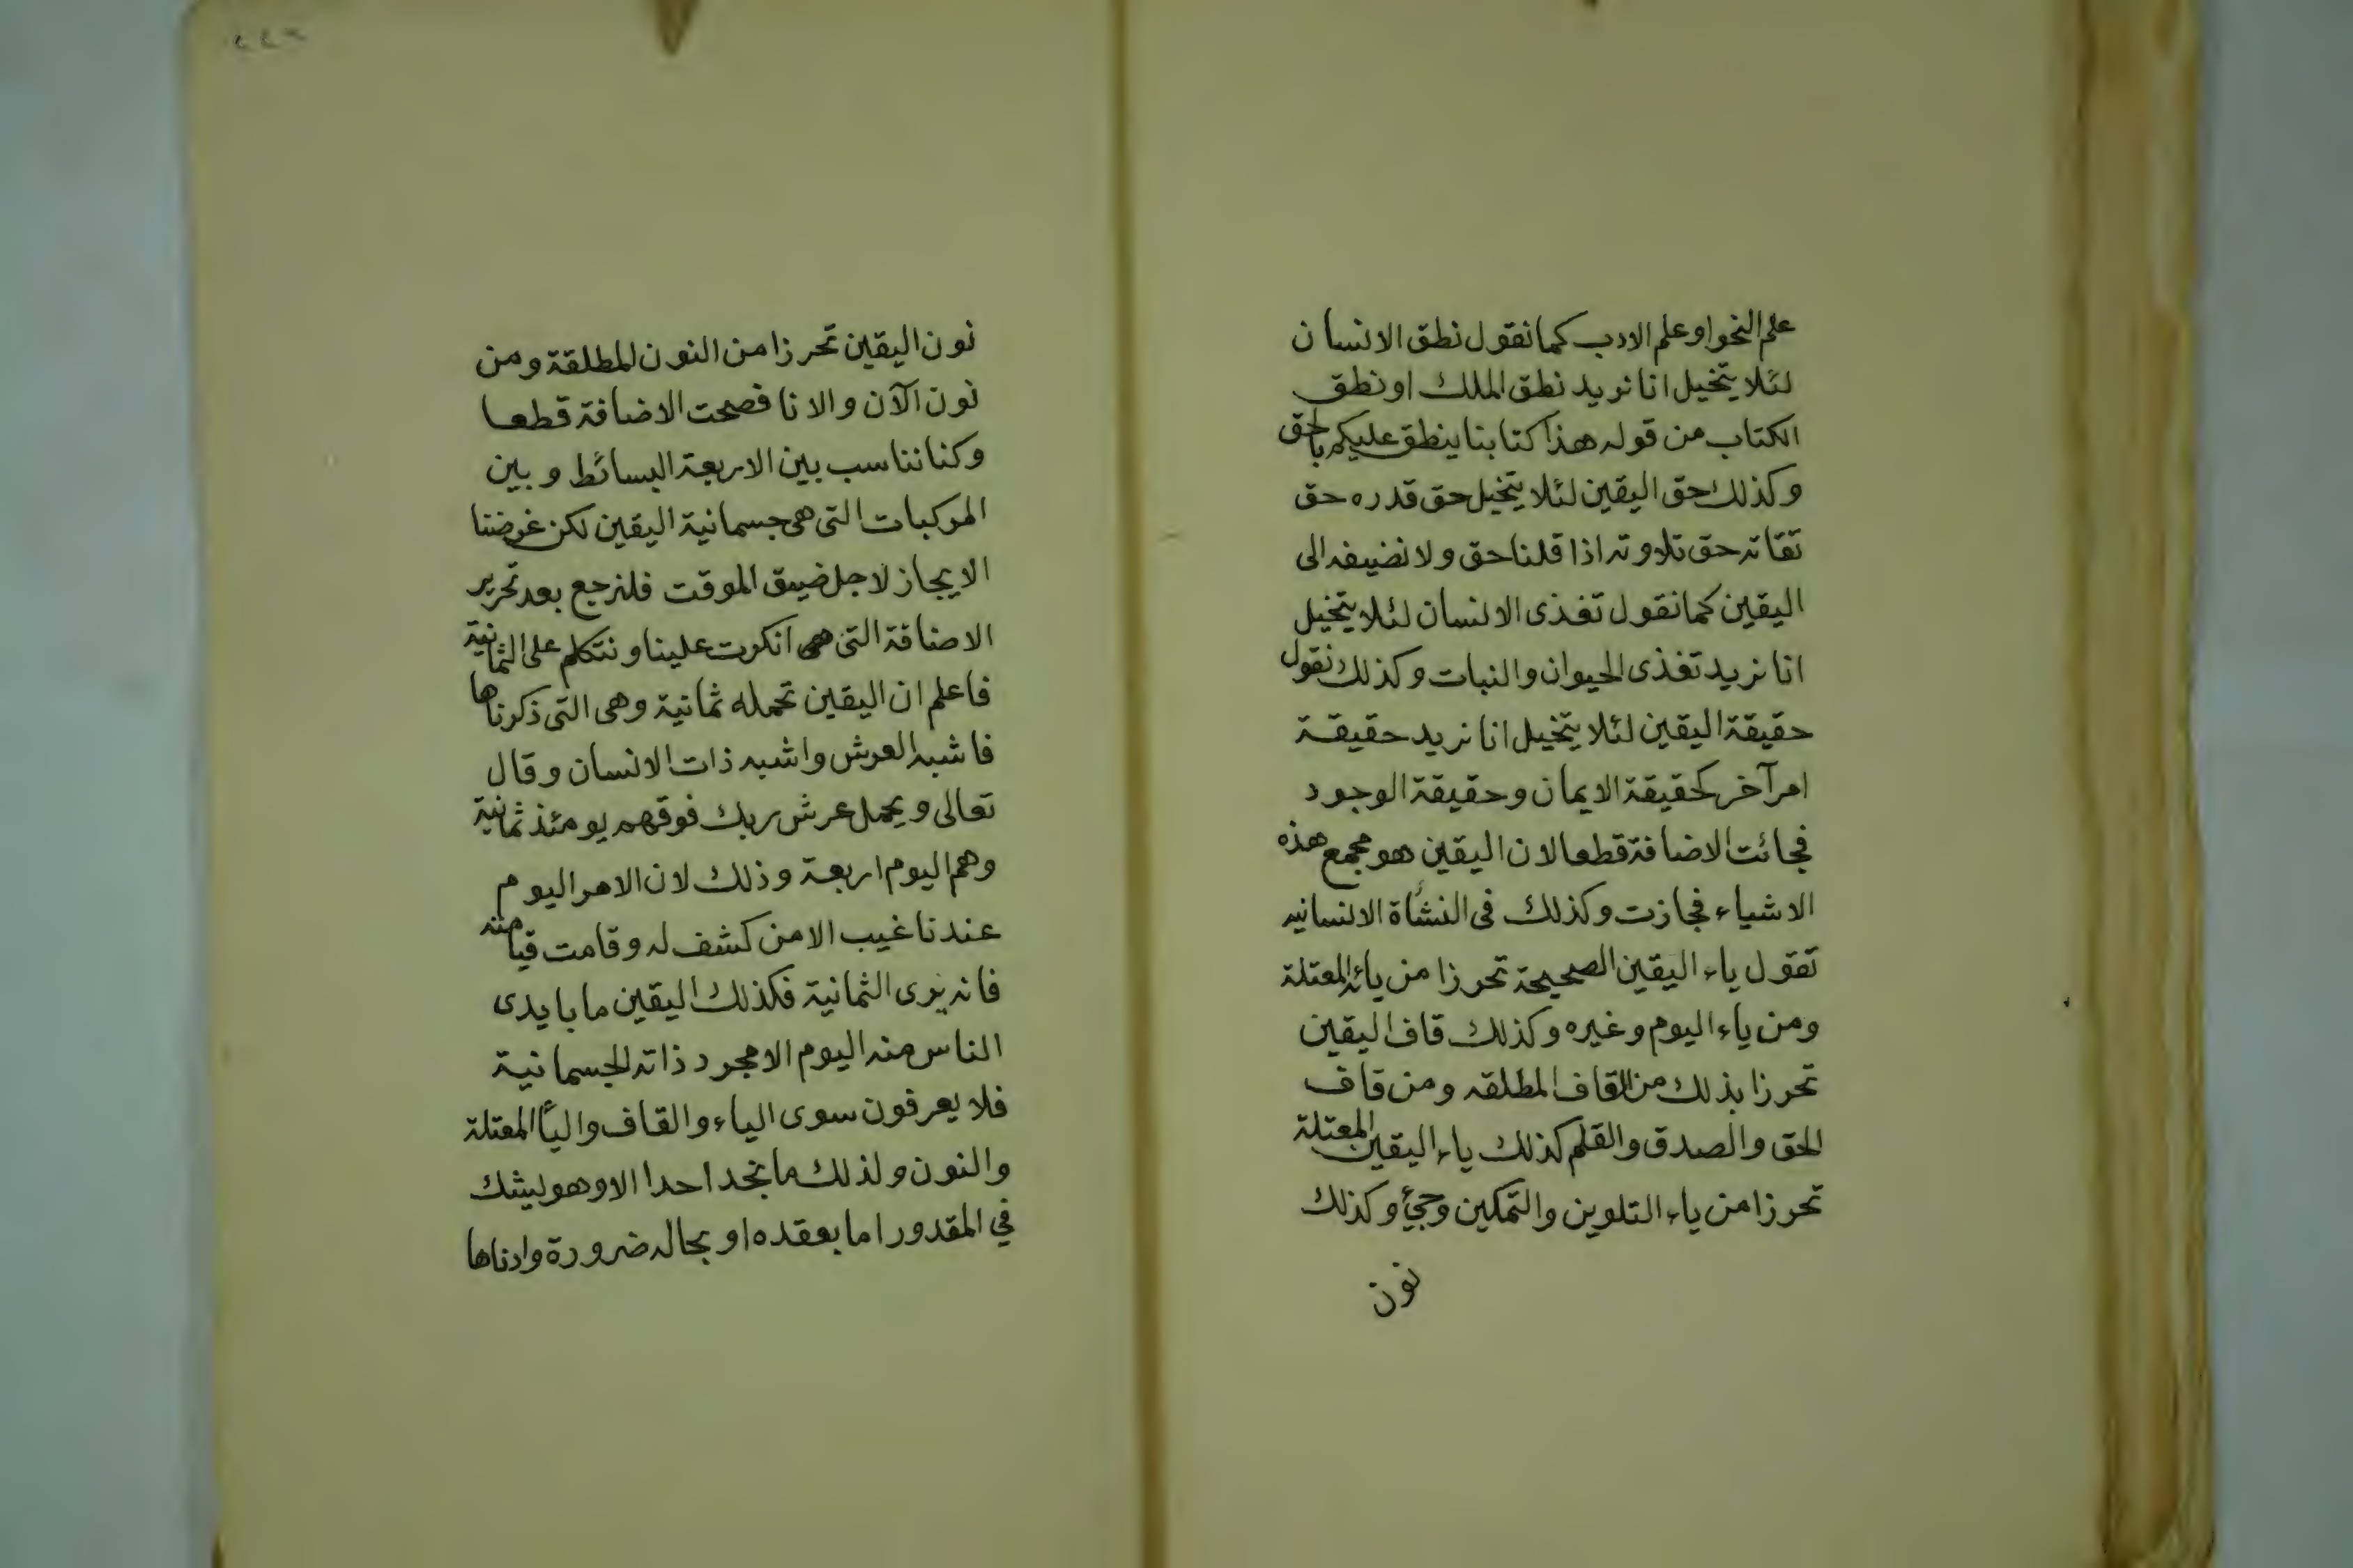 علم النحو او علم الادب كما نقول نطق الانسان
لئلا يتخيل انا نريد نطق الملك او نطق
الكتاب من قوله هذا كتابنا ينطق عليكم بالحق
وكذلك حق اليقين لئلا يتخيل حق قدره حق
تقاته حق تلاوته اذا قلنا حق ولا نضيفه الى
اليقين كما نقول تغذى الانسان لئلا يتخيل
انا نريد تغذى الحيوان والنبات وكذلك نقول
حقيقة اليقين لئلا يتخيل انا نريد حقيقة
امر آخر كحقيقة الايمان وحقيقة الوجود
فجائت الاضافة قطعا لان اليقين هو مجمع هذه
الاشياء فجازت وكذلك فى النشأة الانسانيه
تقول ياء اليقين الصحيحة تحرزا من يائه المعتلة
ومن ياء اليوم وغيره وكذلك قاف اليقين
تحرزا بذلك من القاف المطلقه ومن قاف
الحق والصدق والقلم كذلك ياء اليقين المعتلة
تحرزا من ياء التلوين والتمكين وجئ وكذلك
نون
نون اليقين تحرزا من النون المطلقة ومن
نون الآن والانا فصحت الاضافة قطعا
وكنا نناسب بين الاربعة البسائط وبين
المركبات التى هى جسمانية اليقين لكن غرضنا
الايجاز لاجل ضيق الموقت فلنرجع بعد تحرير
الاضافة التى هى انكرت علينا ونتكلم على الثمانية
فاعلم ان اليقين تحمله ثمانية وهى التى ذكرناها
فاشبه العرش واشبه ذات الانسان وقال
تعالى ويحمل عرش ربك فوقهم يومئذ ثمانية
وهم اليوم اربعة وذلك لان الامر اليوم
عندنا غيب الا من كشف له وقامت قيامته
فانه يرى الثمانية فكذلك اليقين ما بايدى
الناس منه اليوم الا مجرد ذاته الجسمانية
فلا يعرفون سوى الياء والقاف واليأ المعتلة
والنون ولذلك ما نجد احدا الا وهو ليشك
في المقدور اما بعقده او بحاله ضرورة وادناها